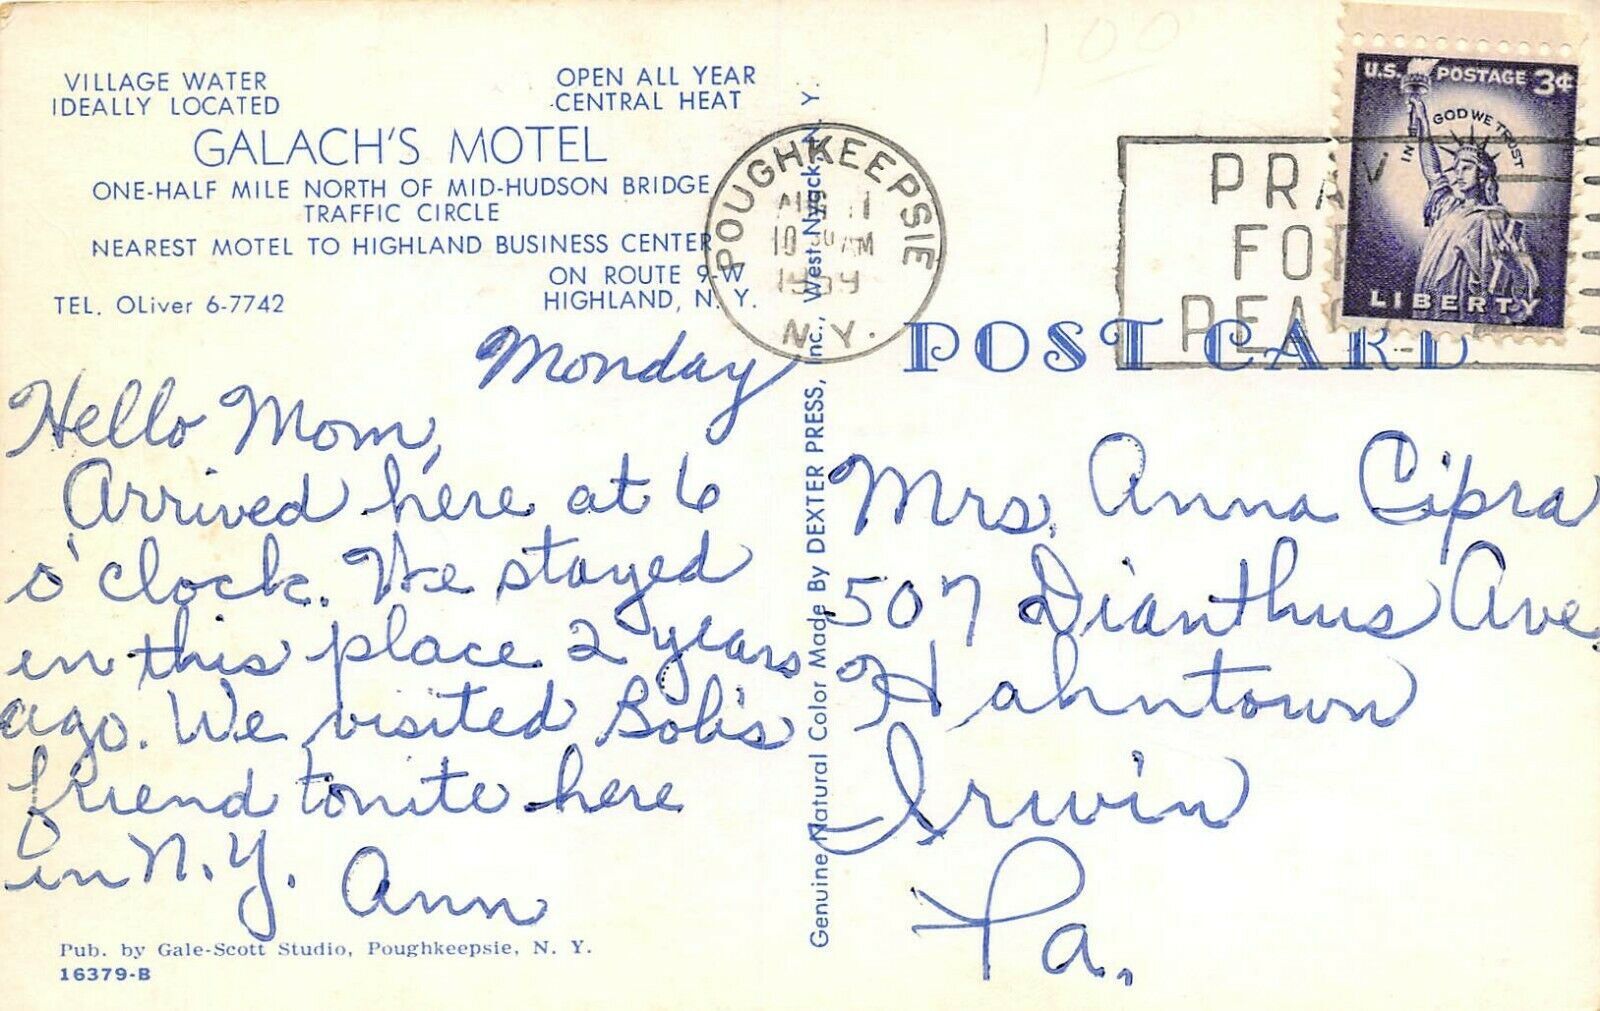 VILLAGE WATER
IDEALLY LOCATED
OPEN ALL YEAR
CENTRAL HEAT
GALACH'S MOTEL
ONE-HALF MILE NORTH OF MID-HUDSON BRIDGE
TRAFFIC CIRCLE
NEAREST MOTEL TO HIGHLAND BUSINESS CENTER
ON ROUTE 9-W
TEL. OLiver 6-7742
HIGHLAND, N. Y.
Monday
Hello Mom,
Arrived here at 6
o'clock. We stayed
in this place 2 years
ago. We visited Bob's
friend tonite here
in N.Y. Ann
Pub. by Gale-Scott Studio, Poughkeepsie, N. Y.
16379-B
Genuine Natural Color Made By DEXTER PRESS, Inc., West Nyack, N. Y.
POUGHKEEPSIE
AUG 11
10 30 AM
1959
N.Y.
PRAY
FOR
PEACE
U.S. POSTAGE 3¢
IN GOD WE TRUST
LIBERTY
POST CARD
Mrs. Anna Cipra
507 Dianthus Ave
Hahntown
Irwin
Pa.
100